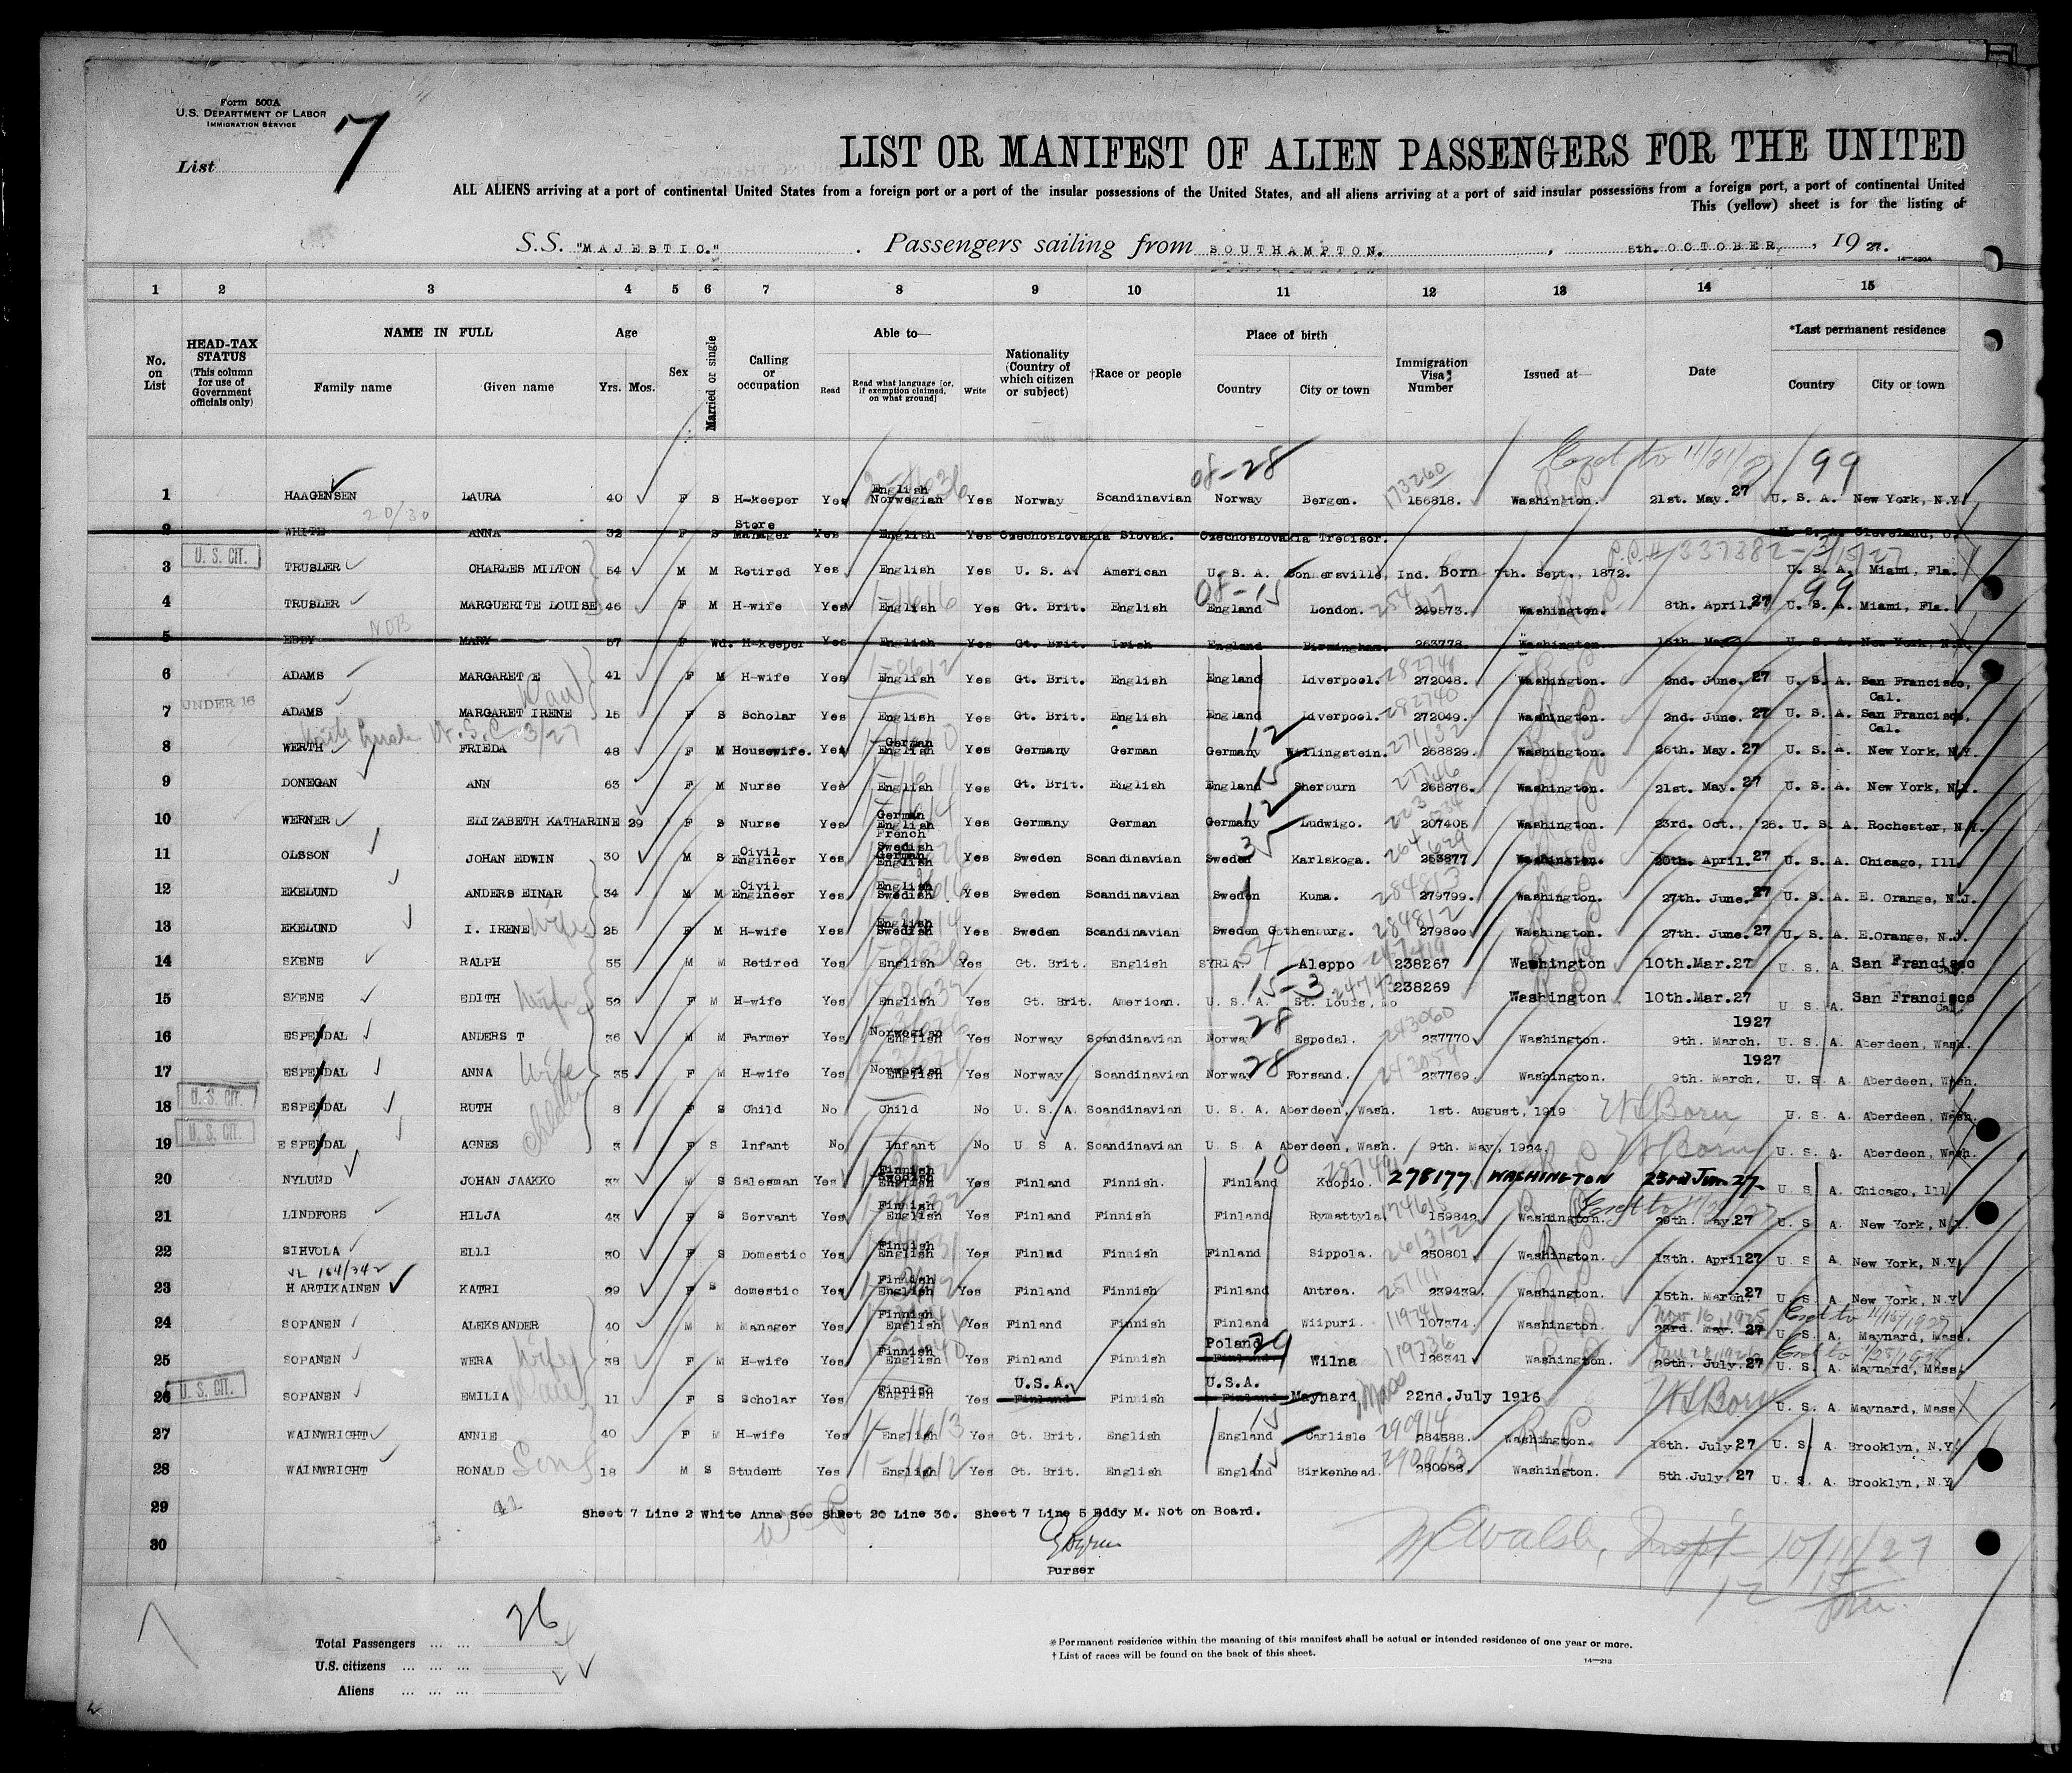 Form 500A
U.S. DEPARTMENT OF LABOR
IMMIGRATION SERVICE
List 7
LIST OR MANIFEST OF ALIEN PASSENGERS FOR THE UNITED
ALL ALIENS arriving at a port of continental United States from a foreign port or a port of the insular possessions of the United States, and all aliens arriving at a port of said insular possessions from a foreign port, a port of continental United
This (yellow) sheet is for the listing of
S.S. "MAJESTIC." . Passengers sailing from SOUTHAMPTON. , 5th. OCTOBER, , 19 27.
14—430A
1 2 3 4 5 6 7 8 9 10 11 12 13 14 15
No. on List
HEAD-TAX STATUS (This column for use of Government officials only)
NAME IN FULL Family name Given name
Age Yrs. Mos.
Sex
Married or single
Calling or occupation
Able to— Read Read what language [or, if exemption claimed, on what ground] Write
Nationality (Country of which citizen or subject)
†Race or people
Place of birth Country City or town
Immigration Visa Number
Issued at—
Date
*Last permanent residence Country City or town
08-28 173260 99
1 HAAGENSEN LAURA 40 F S H-keeper Yes English Norwegian Yes Norway Scandinavian Norway Bergen. 156818. Washington. 21st. May. 27 U. S. A. New York, N.Y.
20/30
2 WHITE ANNA 32 F S Store Manager Yes English Yes Czechoslovakia Slovak. Czechoslovakia Trecisor. U. S. A. Cleveland, O.
U. S. CIT. P.P.# 337382-3/15/27
3 TRUSLER CHARLES MILTON 54 M M Retired Yes English Yes U. S. A. American U. S. A. Connersville, Ind. Born 7th. Sept., 1872. U. S. A. Miami, Fla.
08-15 99
4 TRUSLER MARGUERITE LOUISE 46 F M H-wife Yes English Yes Gt. Brit. English England London. 249573. Washington. 8th. April. 27 U. S. A. Miami, Fla.
NOB
5 EDDY MARY 57 F Wd. H-keeper Yes English Yes Gt. Brit. Irish England Birmingham. 263778. Washington. 16th. May U. S. A. New York, N.Y.
6 ADAMS MARGARET E 41 F M H-wife Yes English Yes Gt. Brit. English England Liverpool. 272048. Washington. 2nd. June. 27 U. S. A. San Francisco, Cal.
UNDER 16 282740
7 ADAMS MARGARET IRENE 15 F S Scholar Yes English Yes Gt. Brit. English England Liverpool. 272049. Washington. 2nd. June. 27 U. S. A. San Francisco, Cal.
3/27 12 271132
8 WERTH FRIEDA 48 F M Housewife. Yes German English Yes Germany German Germany Willingstein. 268829. Washington. 26th. May. 27 U. S. A. New York, N.Y.
15
9 DONEGAN ANN 63 F M Nurse Yes English Yes Gt. Brit. English England Sherburn 268876. Washington. 21st. May. 27 U. S. A. New York, N.Y.
12
10 WERNER ELIZABETH KATHARINE 29 F S Nurse Yes German English French Yes Germany German Germany Ludwigo. 207405 Washington. 23rd. Oct., 26. U. S. A. Rochester, N.Y.
35 264629
11 OLSSON JOHAN EDWIN 30 M S Civil Engineer Yes Swedish German English Yes Sweden Scandinavian Sweden Karlskoga. 253877 Washington. 20th. April. 27 U. S. A. Chicago, Ill.
284813
12 EKELUND ANDERS EINAR 34 M M Civil Engineer Yes English Swedish Yes Sweden Scandinavian Sweden Kuma. 279799. Washington. 27th. June. 27 U. S. A. E. Orange, N.J.
284812
13 EKELUND I. IRENE Wife 25 F M H-wife Yes English Swedish Yes Sweden Scandinavian Sweden Gothenburg. 279800. Washington. 27th. June. 27 U. S. A. E.Orange, N.J.
247419
14 SKENE RALPH 55 M M Retired Yes English Yes Gt. Brit. English SYRIA. Aleppo 238267 Washington 10th.Mar.27 U. S. A. San Francisco Cal.
15-3
15 SKENE EDITH Wife 52 F M H-wife Yes English Yes Gt. Brit. American. U. S. A. St. Louis, Mo 238269 Washington 10th.Mar.27 U. S. A. San Francisco Cal.
28 243060 1927
16 ESPENDAL ANDERS T 36 M M Farmer Yes Norwegian English Yes Norway Scandinavian Norway Espedal. 237770 Washington. 9th. March. U. S. A. Aberdeen, Wash.
28 243059 1927
17 ESPENDAL ANNA Wife 35 F M H-wife Yes Norwegian English Yes Norway Scandinavian Norway Forsand. 237769. Washington. 9th. March. U. S. A. Aberdeen, Wash.
U. S. CIT. children
18 ESPENDAL RUTH 8 F S Child No Child No U. S. A. Scandinavian U. S. A. Aberdeen, Wash. 1st. August, 1919 US Born U. S. A. Aberdeen, Wash.
U. S. CIT.
19 ESPENDAL AGNES 3 F S Infant No Infant No U S A. Scandinavian U. S. A Aberdeen, Wash. 9th. May, 1924. US Born U. S. A. Aberdeen, Wash.
10
20 NYLUND JOHAN JAAKKO 33 M S Salesman Yes Finnish Swedish English Yes Finland Finnish. Finland Kuopio. 278177 WASHINGTON 23rd Jun. 27 U S A. Chicago, Ill
174615
21 LINDFORS HILJA 43 F S Servant Yes Finnish English Yes Finland Finnish Finland Rymattyla 159842. Washington. 29th. May. 27 U. S A. New York, N.Y.
261312
22 SIHVOLA ELLI 30 F S Domestic Yes Finnish English Yes Finlad Finnish Finland Sippola. 250801. Washington. 13th. April 27 U. S A. New York, N.Y
VL 164/342
23 HARTIKAINEN KATRI 29 F S domestic Yes Finnish English Yes Finland Finnish Finland Antrea. 239439. Washington. 15th. March. 27 U. S A. New York, N.Y
119741 Nov 16, 1925 Extd to 11/16/1927
24 SOPANEN ALEKSANDER 40 M M Manager Yes Finnish English Yes Finland Finnish Finland Wiipuri. 107374. Washington 23rd. May. 27 U. S. A. Maynard, Mass.
119736 Poland 29
25 SOPANEN WERA Wife 38 F M H-wife Yes Finnish English Yes Finland Finnish Finland Wilna 126341 Washington. 29th. July. 27 U. S. A. Maynard, Mass.
U. S. CIT. U.S.A. U.S.A. Mass
26 SOPANEN EMILIA 11 F S Scholar Yes Finnish English Yes Finland Finnish Finland Maynard 22nd.July 1916 US Born U. S. A. Maynard, Mass
15 290914
27 WAINWRIGHT ANNIE 40 F M H-wife Yes English Yes Gt. Brit. English England Carlisle 284588. Washington. 16th. July 27 U. S. A. Brooklyn, N.Y.
15 290913
28 WAINWRIGHT RONALD Son 18 M S Student Yes English Yes Gt. Brit. English England Birkenhead. 280968. Washington. 5th.July. 27 U. S. A. Brooklyn, N.Y
29 Sheet 7 Line 2 White Anna See Sheet 20 Line 30. Sheet 7 Line 5 Eddy M. Not on Board.
30
Purser
Walsh, Inspt 10/11/27
Total Passengers ... ... 26
U.S. citizens ... ... ...
Aliens ... ... ...
*Permanent residence within the meaning of this manifest shall be actual or intended residence of one year or more.
† List of races will be found on the back of this sheet.
14—213